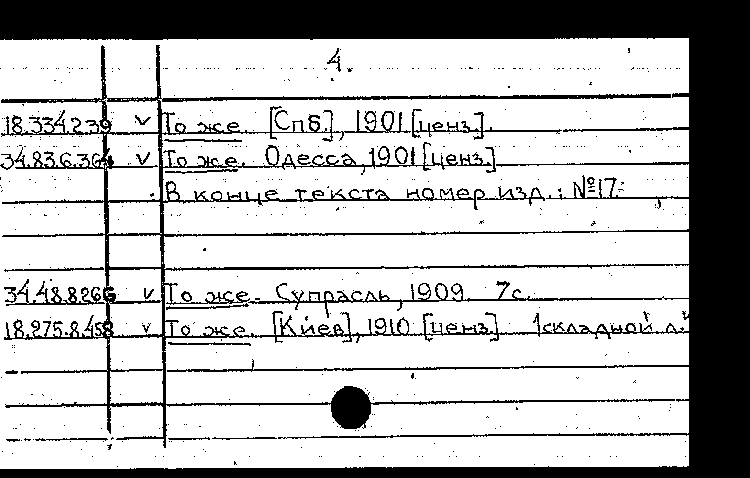 4.
18.334.2.39 v То же. [Спб.], 1901 [ценз.].
34.83.6.364 v То же. Одесса, 1901 [ценз.]
В конце текста номер изд.: №17.
34.48.8.266 v То же. Супрасль, 1909. 7с.
18.275.8.458 v То же. [Киев], 1910 [ценз.] 1 складной л.